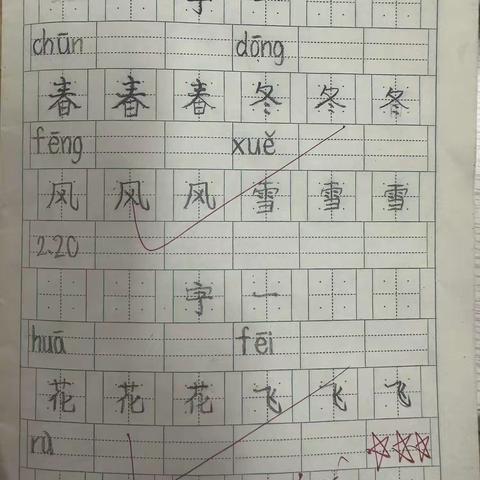 chūn dōng
春 春 春 冬 冬 冬
fēng xuě
风 风 风 雪 雪 雪
2.20
字 一
huā fēi
花 花 花 飞 飞 飞
rù